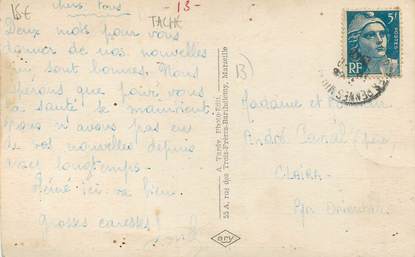 15€
TACHÉ
- 13 -
chers tous
Deux mots pour vous
donner de nos nouvelles
qui sont bonnes. Nous
espérons que pour vous
la santé se maintient.
Nous n'avons pas eu
de vos nouvelles depuis
assez longtemps.
ici va bien.
Grosses caresses!
A. Tardy Photo-Edit.
55 A, rue des Trois-Frères-Barthélemy, Marseille
13)
5F
POSTES
RF
Madame et Monsieur
André
CLAIRA
Pyr. Orientales